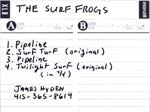 THE SURF FROGS
A B
1. Pipeline
2. Surf Turf (original)
3. Pipeline
4. Twilight Surf (original)
(in '4)
JAMES HYDEN
415-365-8614